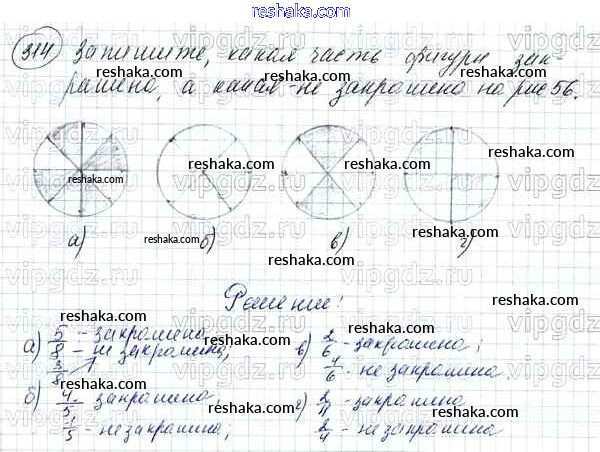 reshaka.com
314 Запишите, какая часть фигуры зак-
рашена, а какая - не закрашена на рис 56.
reshaka.com
reshaka.com
vipgdz.ru
reshaka.com
reshaka.com
reshaka.com
reshaka.com
а) б) в) г)
reshaka.com
reshaka.com
reshaka.com
Решение:
reshaka.com
а) 5/8 - закрашено,
3/8 - не закрашено;
б) 4/5 - закрашено,
1/5 - не закрашена;
в) 2/6 - закрашено;
4/6 - не закрашено.
г) 2/4 - закрашено
2/4 - не закрашена
reshaka.com
reshaka.com
reshaka.com
reshaka.com
reshaka.com
reshaka.com